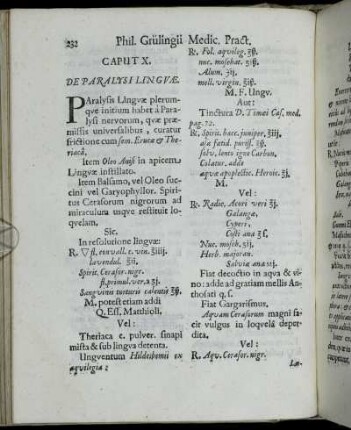 232 Phil. Grülingii Medic. Pract.
CAPUT X.
DE PARALYSI LINGVÆ.
PAralysis Linguæ plerum-
qve initium habet à Para-
lysi nervorum, qvæ præ-
missis universalibus, curatur
frictione cum sem. Erucæ & The-
riacâ,
Item Oleo Anisi in apicem
Lingvæ instillato.
Item Balsamo, vel Oleo suc-
cini vel Garyophyllor. Spiri-
tus Cerasorum nigrorum ad
miraculum usqve restituit lo-
qvelam.
Sic.
In resolutione lingvæ:
lavendul.
Spirit. Cerasor. nigr.
M. potest etiam addi
Q. Ess. Matthioli.
Vel:
Theriaca c. pulver. sinapi
mista & sub lingva detenta.
Ungventum Hildesheimii ex
aqvilegia:
℞. Fol. aqvileg. ʒß.
nuc. moschat. ʒß.
Alum. ʒij.
mell. virgin. ℥iß.
M. F. Ungv.
Aut:
Tinctura D. Timæi Cas. med.
pag. 72.
℞. Spirit. bacc. juniper. ℥iij,
solv. lento igne Carbon.
Colatur. adde
aqvæ apoplectic. Heroic. ℥j.
M.
Vel:
℞. Radic. Acori veri ℥j.
Galangæ,
Cyperi,
Costi ana ʒſ.
Nuc. mosch. ʒij.
Herb. majoran.
Salviæ ana ℥j.
Fiat decoctio in aqva & vi-
no: adde ad gratiam mellis An-
thosati q. s.
Fiat Gargarismus.
Aqvam Cerasorum magni fa-
cit vulgus in loqvelâ deper-
dita.
Vel:
℞. Aqv. Cerasor. nigr.